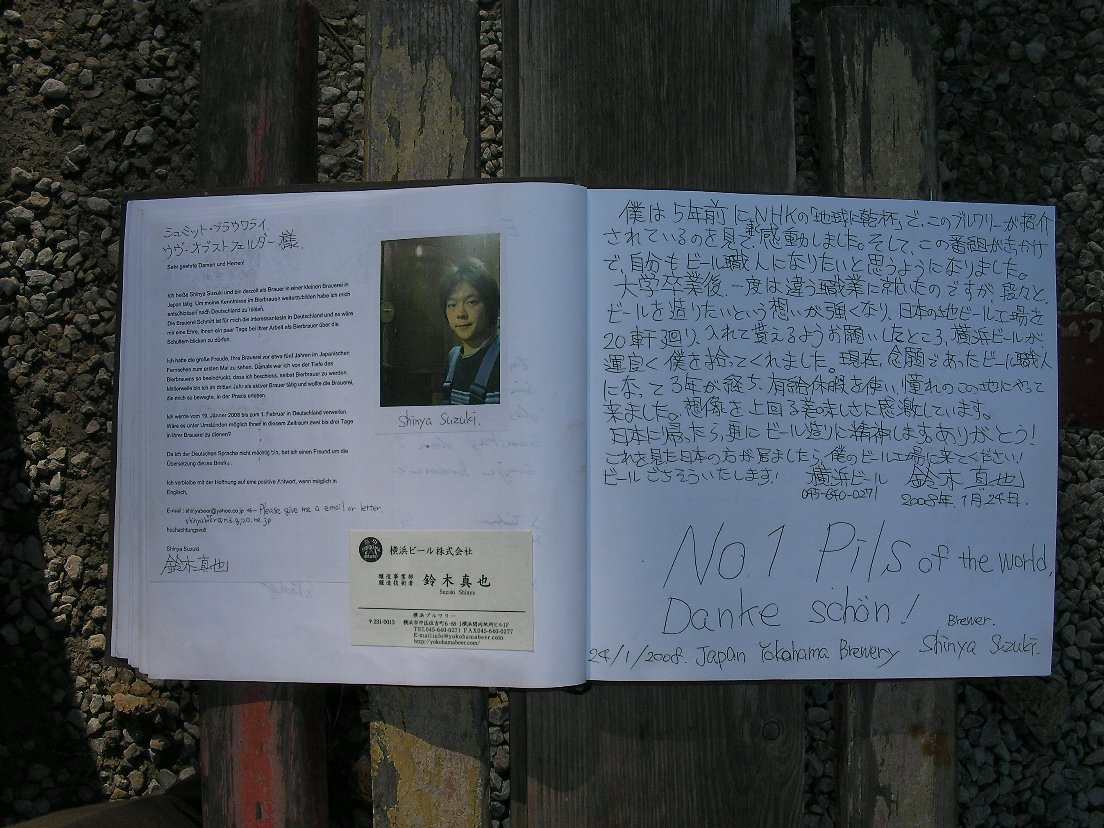 シュミット・ブラウワライ
ウヴ・オブストフェルダー 様,
Sehr geehrte Damen und Herren!
Ich heiße Shinya Suzuki und bin derzeit als Brauer in einer kleinen Brauerei in
Japan tätig. Um meine Kenntnisse im Bierbrauen weiterzubilden habe ich mich
entschlossen nach Deutschland zu reisen.
Die Brauerei Schmitt ist für mich die interessanteste in Deutschland und es wäre
mir eine Ehre, Ihnen ein paar Tage bei Ihrer Arbeit als Bierbrauer über die
Schultern blicken zu dürfen.
Ich hatte die große Freude, Ihre Brauerei vor etwa fünf Jahren im Japanischen
Fernsehen zum ersten Mal zu sehen. Damals war ich von der Tiefe des
Bierbrauens so beeindruckt, dass ich beschloss, selbst Bierbrauer zu werden.
Mittlerweile bin ich im dritten Jahr als aktiver Brauer tätig und wollte die Brauerei,
die mich so bewegte, in der Praxis erleben.
Ich werde vom 19. Jänner 2008 bis zum 1. Februar in Deutschland verweilen.
Wäre es unter Umständen möglich Ihnen in diesem Zeitraum zwei bis drei Tage
in Ihrer Brauerei zu dienen?
Da ich der Deutschen Sprache nicht mächtig bin, bat ich einen Freund um die
Übersetzung dieses Briefs.
Ich verbleibe mit der Hoffnung auf eine positive Antwort, wenn möglich in
Englisch,
E-mail : shinyabeer@yahoo.co.jp ← Please give me a email or letter.
hochachtungsvoll
Shinya Suzuki
鈴木真也
Shinya Suzuki.
横浜ビール株式会社
醸造事業部
醸造技術者 鈴木真也
Suzuki Shinya
横浜ブルワリー
〒231-0013 横浜市中区住吉町6-68-1横浜関内地所ビル1F
TEL045-640-0271 FAX045-640-0277
E-mail:info@yokohamabeer.com
http://yokohamabeer.com/
僕は5年前にNHKの「地球に乾杯」で、このブルワリーが紹介
されているのを見て感動しました。そして、この番組がきっかけ
で、自分もビール職人になりたいと思うようになりました。
大学卒業後、一度は違う職業に就いたのですが、段々と、
ビールを造りたいという想いが強くなり、日本の地ビール工場を
20軒廻り、入れて貰えるようお願いしたところ、横浜ビールが
運良く僕を拾ってくれました。現在、念願であったビール職人
になって3年が経ち、有給休暇を使い憧れのこの地にやって
来ました。想像を上回る美味しさに感激しています。
日本に帰ったら、更にビール造りに精神します。ありがとう!
これを見た日本の方が居ましたら、僕のビール工場に来てください!
ビールごちそういたします! 横浜ビール 鈴木真也
045-640-0271 2008年1月24日.
No.1 Pils of the world.
Danke schön! Brewer.
24/1/2008. Japan Yokohama Brewery Shinya Suzuki.